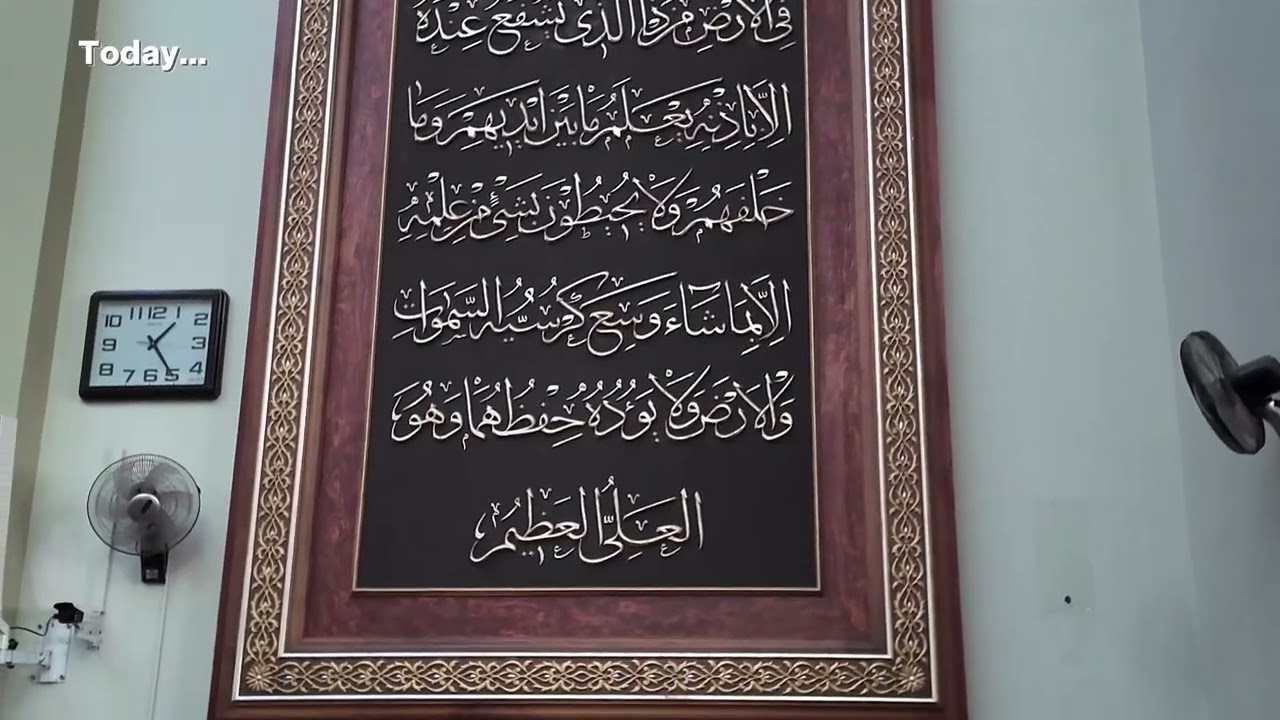 Today...
فِي الْأَرْضِ مَنْ ذَا الَّذِي يَشْفَعُ عِنْدَهُ
إِلَّا بِإِذْنِهِ يَعْلَمُ مَا بَيْنَ أَيْدِيهِمْ وَمَا
خَلْفَهُمْ وَلَا يُحِيطُونَ بِشَيْءٍ مِنْ عِلْمِهِ
إِلَّا بِمَا شَاءَ وَسِعَ كُرْسِيُّهُ السَّمٰوَاتِ
وَالْأَرْضَ وَلَا يَؤُدُهُ حِفْظُهُمَا وَهُوَ
الْعَلِيُّ الْعَظِيمُ
11 12 1
10 2
9 3
8 4
7 6 5